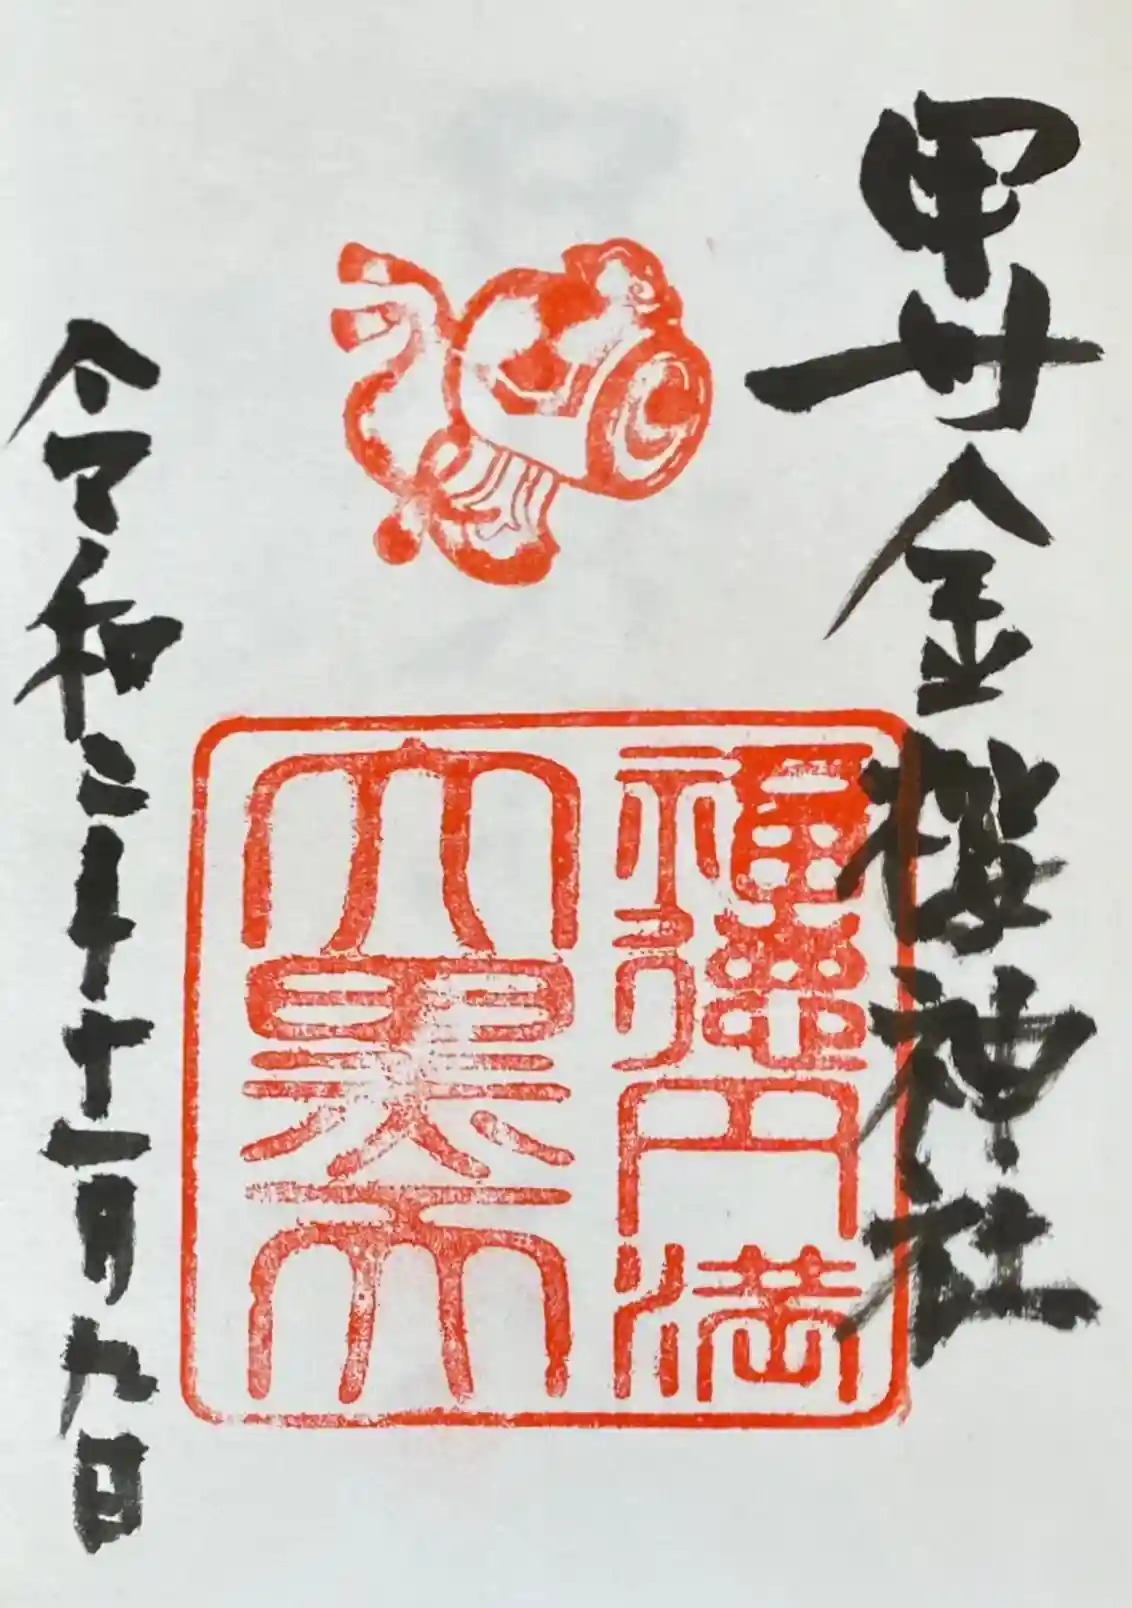 甲州金桜神社
福徳円満
大黒天
令和二年十一月九日